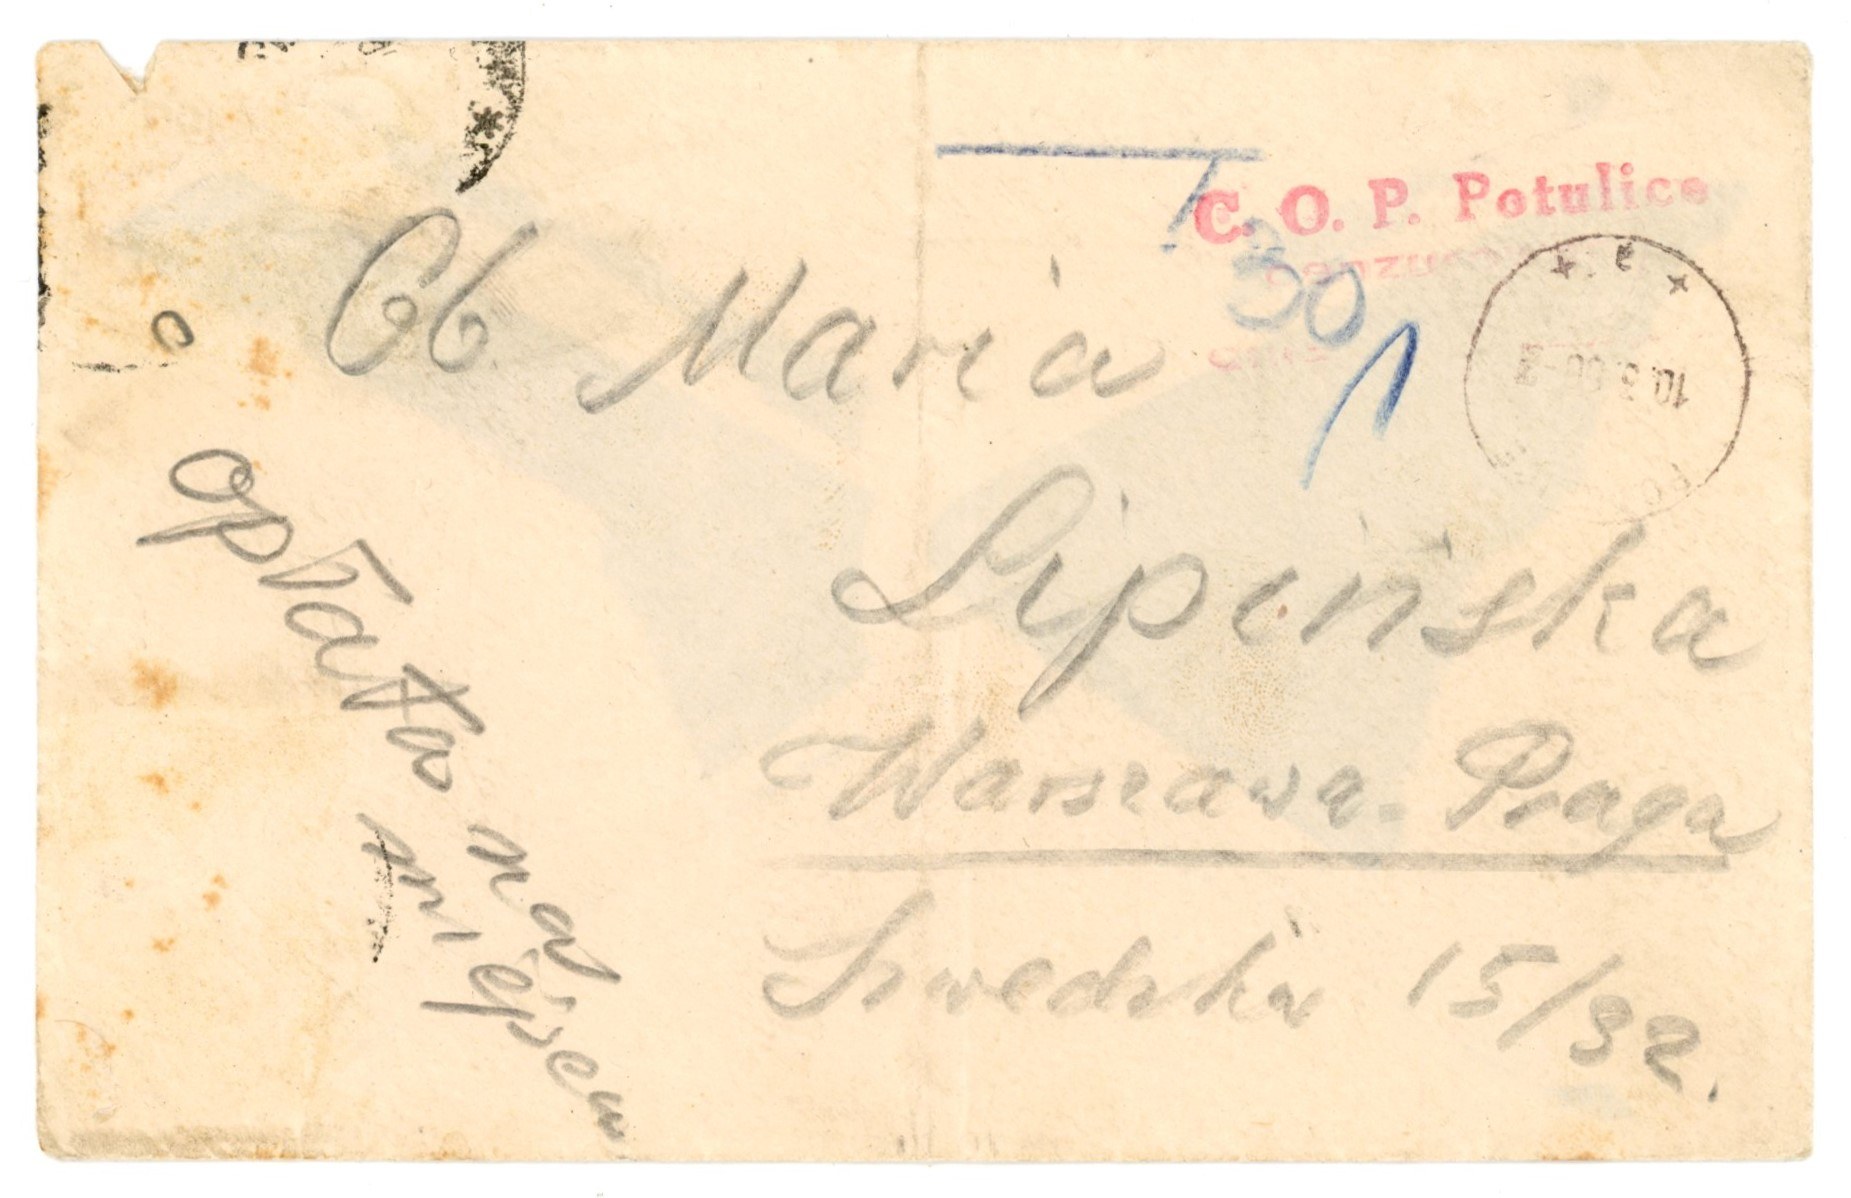 C. O. P. Potulice
T. 30
Ob Maria
Lipińska
Warszawa-Praga
Szwedzka 15/32.
opłata na
miejscu